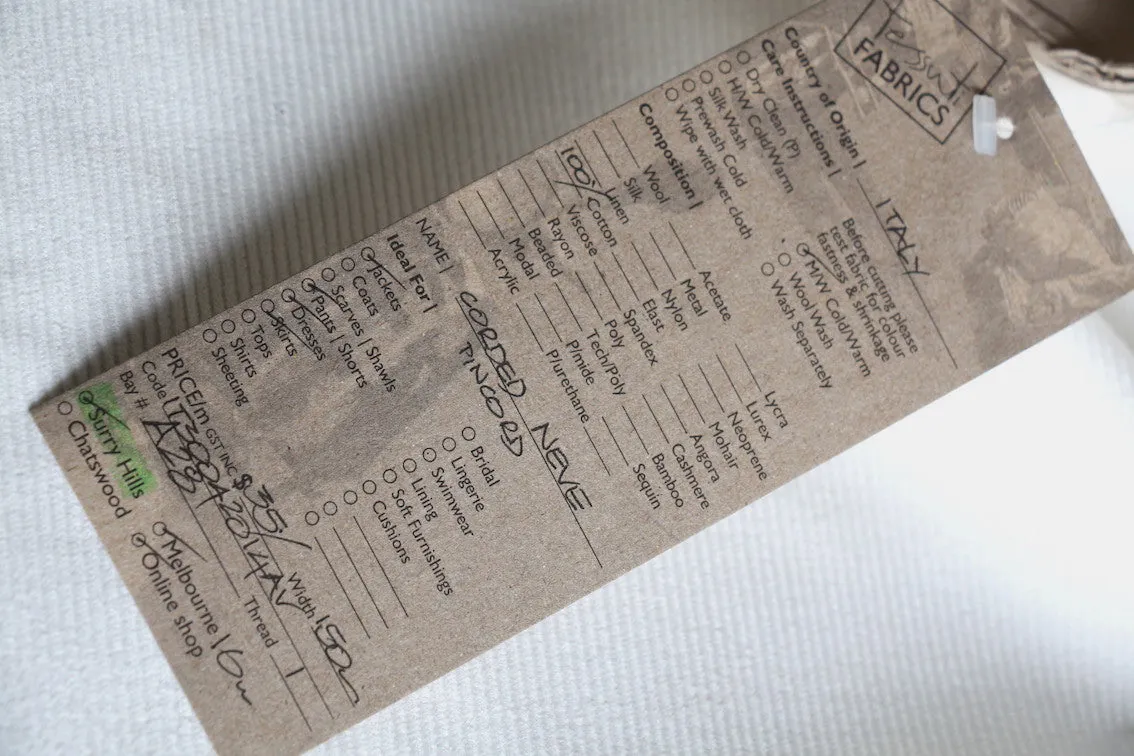 Tessuti
FABRICS
Country of Origin | ITALY
Care Instructions |
Before cutting please
test fabric for colour
fastness & shrinkage
Dry Clean (P)
H/W Cold/Warm
Silk Wash
Prewash Cold
Wipe with wet cloth
M/W Cold/Warm
Wool Wash
Wash Separately
Composition |
Wool
Silk
Linen
100% Cotton
Viscose
Rayon
Beaded
Modal
Acrylic
Acetate
Metal
Nylon
Elast
Spandex
Poly
Tech/Poly
P/mide
P/urethane
Lycra
Lurex
Neoprene
Mohair
Angora
Cashmere
Bamboo
Sequin
NAME | CORDED NEVE
PINCORD
Ideal For |
Jackets
Coats
Scarves | Shawls
Pants | Shorts
Dresses
Skirts
Tops
Shirts
Sheeting
Bridal
Lingerie
Swimwear
Lining
Soft Furnishings
Cushions
PRICE/m GST INC $35/ Width 150
Code Thread
Bay #
Surry Hills
Chatswood
Melbourne
Online shop